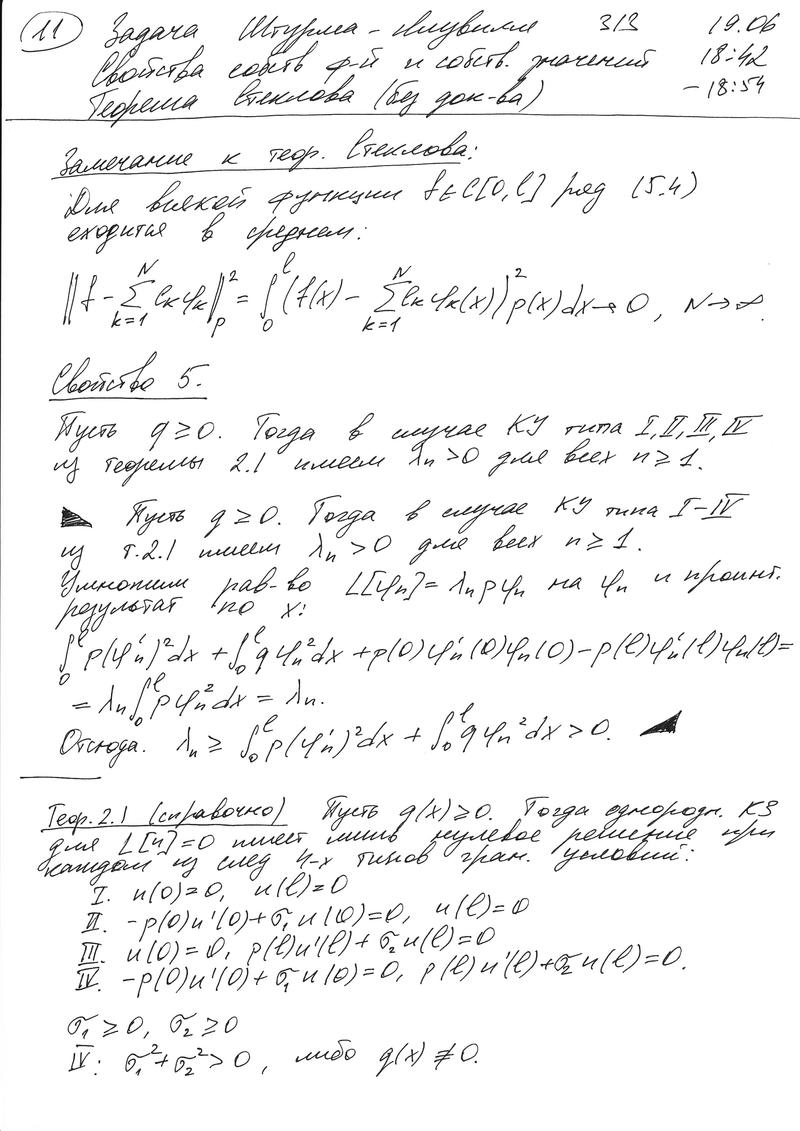 11 Задача Штурма-Лиувилля 3/3 19.06
Свойства собств ф-й и собств. значений 18:42
Теорема Стеклова (без док-ва) -18:54
Замечание к теор. Стеклова:
Для всякой функции f∈C[0,l] ряд (5.4)
сходится в среднем:
‖f - ∑_{k=1}^{N} c_k φ_k‖_ρ^2 = ∫_0^l (f(x) - ∑_{k=1}^{N} c_k φ_k(x))^2 ρ(x)dx → 0, N→∞.
Свойство 5.
Пусть q≥0. Тогда в случае КУ типа I, II, III, IV
из теоремы 2.1 имеем λ_n>0 для всех n≥1.
Пусть q≥0. Тогда в случае КУ типа I-IV
из т.2.1 имеем λ_n>0 для всех n≥1.
Умножим рав-во L[φ_n]=λ_n ρ φ_n на φ_n и проинт.
результат по x:
∫_0^l p(φ_n')^2 dx + ∫_0^l q φ_n^2 dx + p(0)φ_n'(0)φ_n(0) - p(l)φ_n'(l)φ_n(l) =
= λ_n ∫_0^l ρ φ_n^2 dx = λ_n.
Отсюда. λ_n ≥ ∫_0^l p(φ_n')^2 dx + ∫_0^l q φ_n^2 dx > 0.
Теор. 2.1 (справочно) Пусть q(x)≥0. Тогда однородн. КЗ
для L[u]=0 имеет лишь нулевое решение при
каждом из след 4-х типов гран. условий:
I. u(0)=0, u(l)=0
II. -p(0)u'(0)+σ_1 u(0)=0, u(l)=0
III. u(0)=0, p(l)u'(l)+σ_2 u(l)=0
IV. -p(0)u'(0)+σ_1 u(0)=0, p(l)u'(l)+σ_2 u(l)=0.
σ_1≥0, σ_2≥0
IV: σ_1^2+σ_2^2>0, либо q(x)≢0.